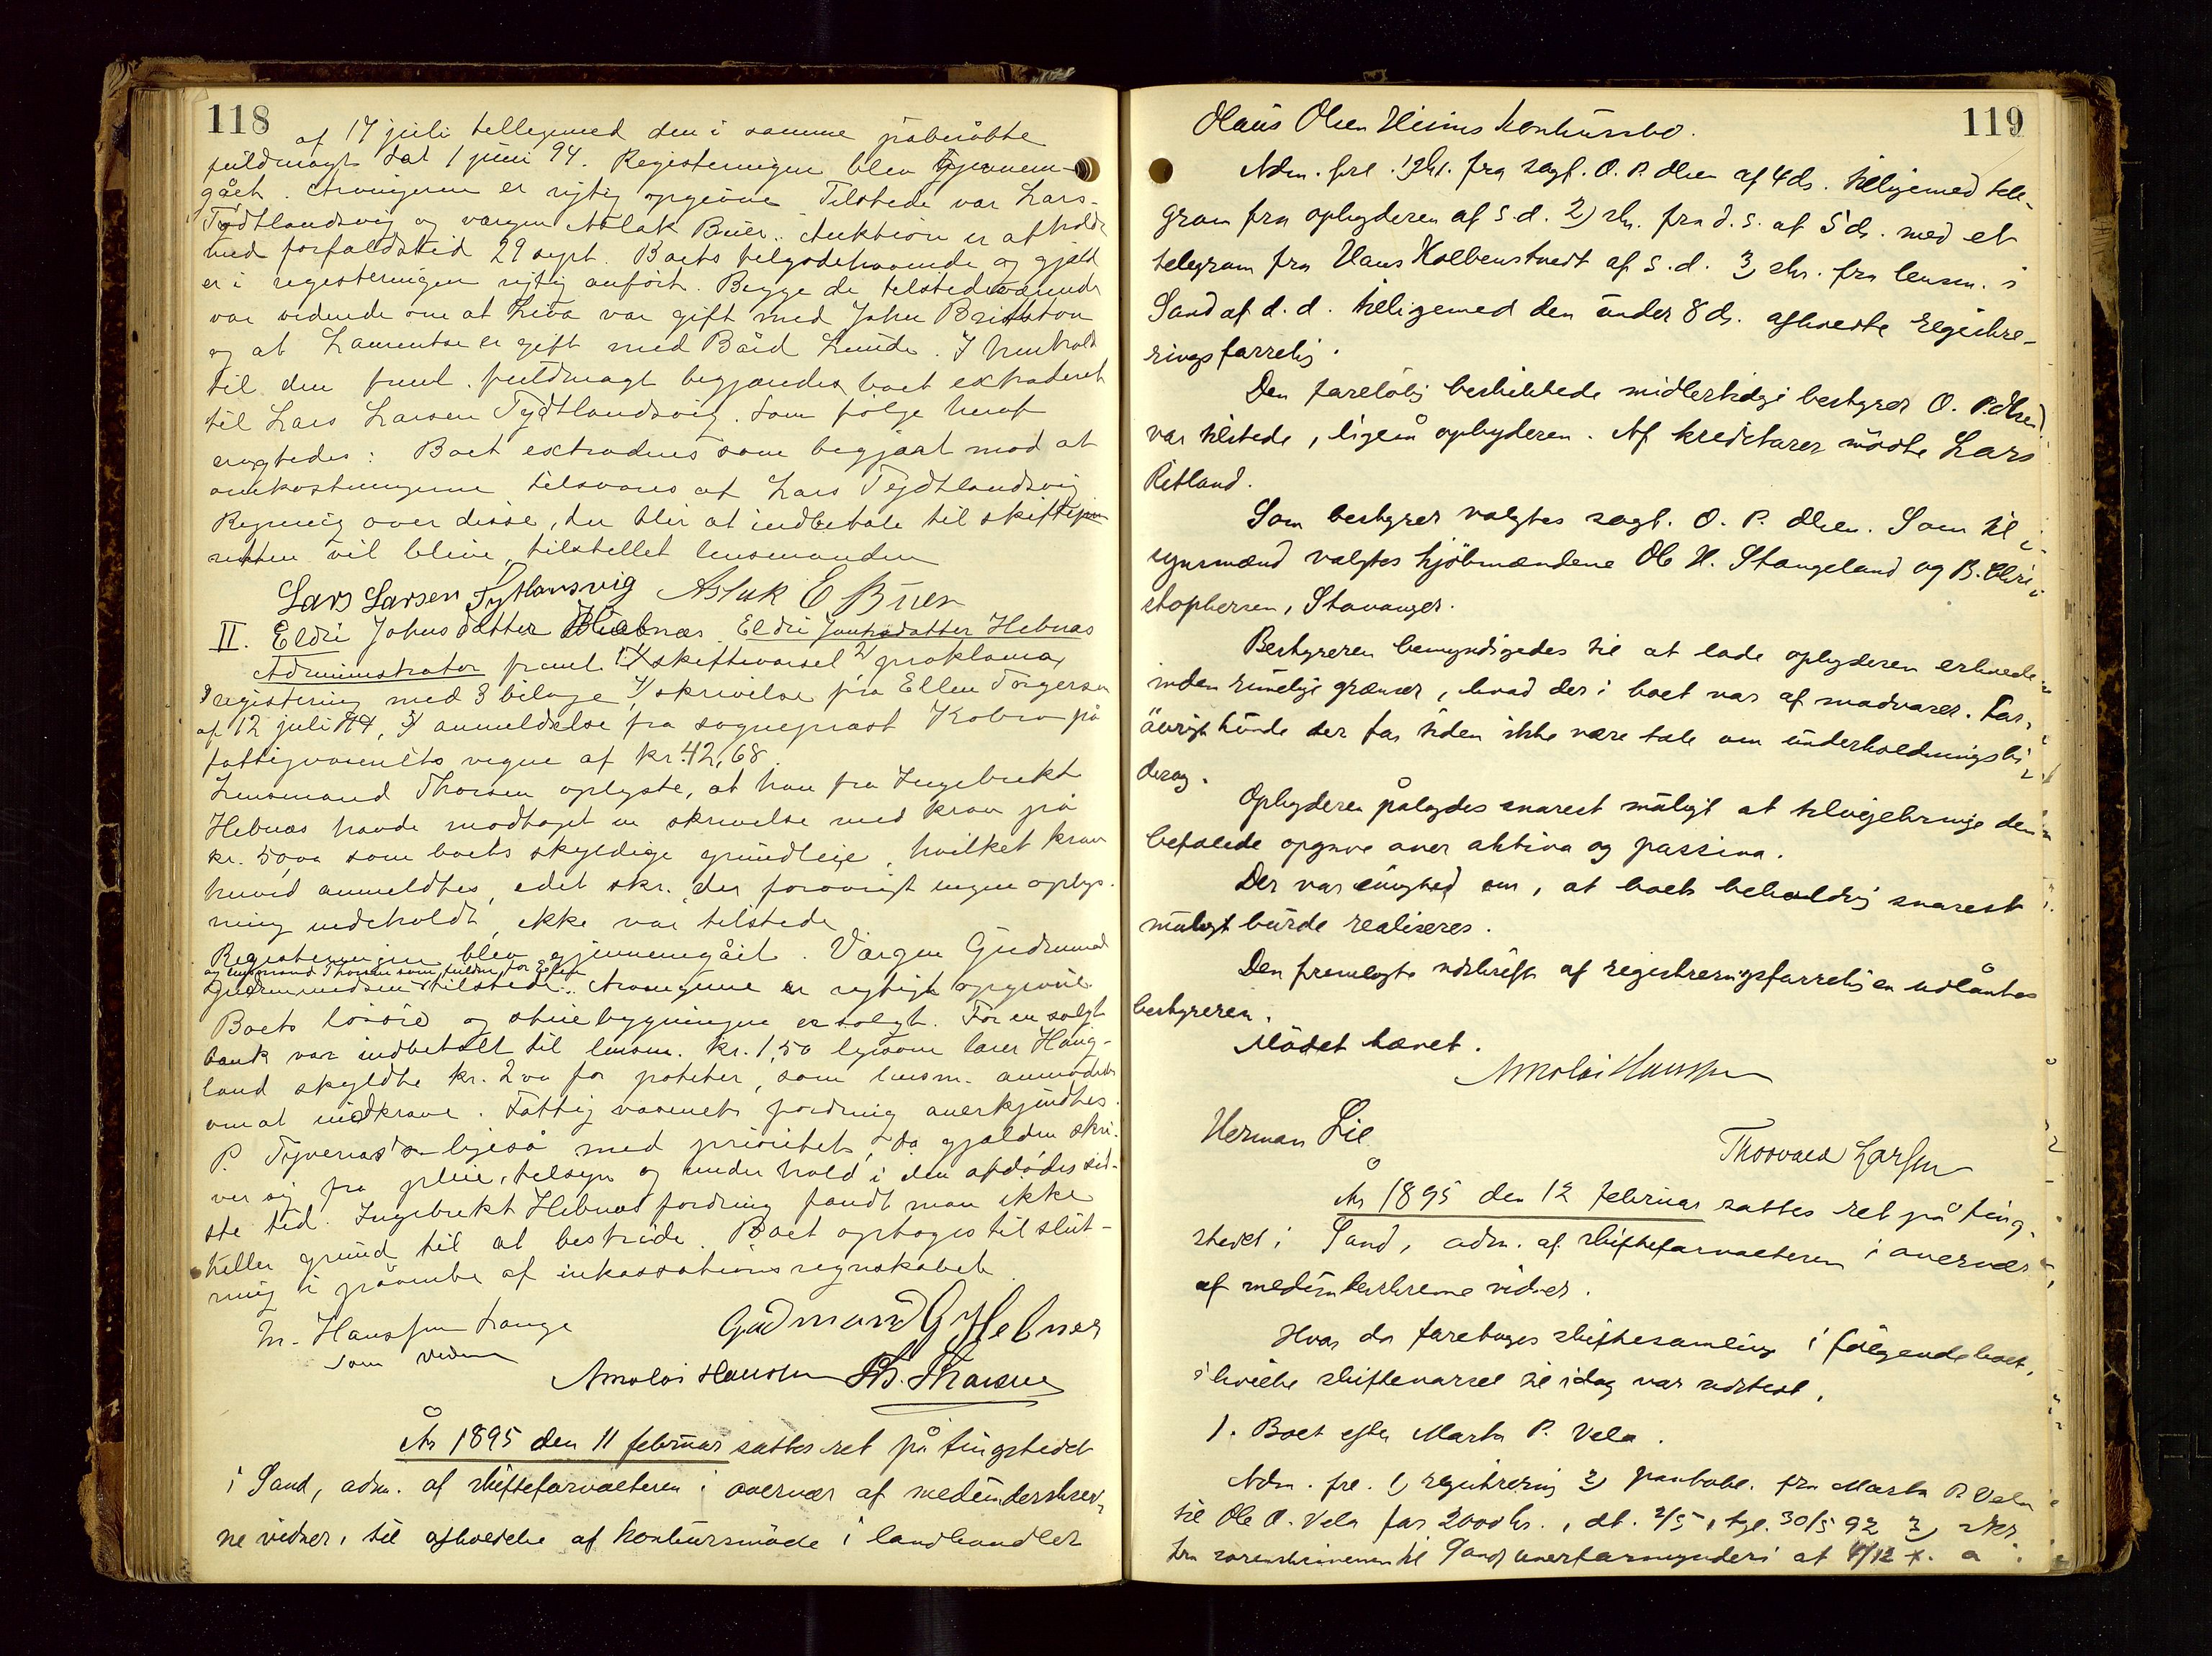 118
af 17 juli tellegemed den i samme påberåbte
fuldmagt dat 1 juni 94. Registeringen blev gjennem-
gået. Arvingerne er rigtig opgivne Tilstede var Lars
Tydtlandsvig og værgen Aslak Buer. Auktion er afholdt
med forfaldstid 29 sept. Boets tilgodehavende og gjæld
er i registeringen rigtig anført. Begge de tilstedeværende
var vidende om at Liva var gift med John
og at Laurentse er gift med Bård Lunde. I henhold
til den freml. fuldmagt begjærdes boet extraderet
til Lars Larsen Tydtlandsvig. Som følge heraf
eragtedes: Boet extraderes som begjært mod at
omkostningerne tilsvares af Lars Tydtlandsvig
Regning over disse, der blir at indbetale til skifte
retten vil blive tilstillet lensmanden
Lars Larsen Tytlansvig Aslak E Buer
II. Eldri Johnsdatter Hebnæs. Eldri Johnsdatter Hebnæs
Administrator freml 1) skiftevarsel 2) proklama,
3 registering med 3 bilage, 4) skrivelse fra Ellen Torgersen
af 12 juli 94, 5) anmeldelse fra sogneprest Kobro på
fattigvæsenets vegne af kr. 42,68.
Lensmand Thorsen oplyste, at han fra Ingebrekt
Hebnæs havde modtaget en skrivelse med krav på
kr. 50,00 som boets skyldige grundleie, hvilket krav
herved anmeldtes, edet skr. der forøvrigt ingen oplys-
ning indeholdt, ikke var tilstede
Registeringen blev gjennemgået. Værgen Gudmund
og lensmand Thorsen som fuldm. for
Gudmundsen tilstede. Arvingerne er rigtigt opgivne
Boets løsøre og stuebygningen er solgt. For en solgt
bænk var indbetalt til lensm. kr. 1,50 ligesom Haug-
land skyldte kr. 2 00 for poteter, som lensm. anmodedes
om at indkræve. Fattigvæsenets fordring anerkjendtes.
P. Tysvenæs's ligeså med prioritet, da gjælden skri-
ver sig fra pleie, tilsyn og underhold i den afdødes sid-
ste tid. Ingebrekt Hebnæs fordring fandt man ikke
heller grund til at bestride. Boet optages til slut-
ning i påvente af inkassationsregnskabet.
M. Hanssen Lange
som vidne
Gudmund G Hebnes
Nicolai Hanssen Th. Thorsen
År 1895 den 11 februar sattes ret på tingstedet
i Sand, adm. af skifteforvalteren i overvær af medunderskrev-
ne vidner, til afholdelse af konkursmøde i landhandler
119
Olaus Olsen Heimes konkursbo.
Adm. frl. 1) skr. fra sagf. O. P. Olsen af 4 ds. tilligemed tele-
gram fra opbyderen af s.d. 2) skr. fra d.s. af 5 ds. med et
telegram fra Hans Kolbenstvedt af s.d. 3) skr. fra lensm. i
Sand af d.d. tilligemed den under 8 ds. afholdte registre-
ringsforretn.
Den foreløbig beskikkede midlertidige bestyrer O. P. Olsen
var tilstede, ligeså opbyderen. Af kreditorer mødte Lars
Ritland.
Som bestyrer valgtes sagf. O. P. Olsen. Som til-
synsmænd valgtes kjøbmændene Ole H. Stangeland og B. Chri-
stophersen, Stavanger.
Bestyreren bemyndigedes til at lade opbyderen erholde
inden rimelige grænser, hvad der i boet var af madvarer. For-
øvrigt kunde der for tiden ikke være tale om underholdningsbi-
drag.
Opbyderen pålagdes snarest muligt at tilveiebringe den
befalede opgave over aktiva og passiva.
Der var enighed om, at boets beholdning snarest
muligt burde realiseres.
Den fremlagte udskrift af registreringsforretningen udlåntes
bestyreren.
Mødet hævet.
Nicolai Hanssen
Herman Lie
Thorvald Larsen
År 1895 den 12 februar sattes ret på ting-
stedet i Sand, adm. af skifteforvalteren i overvær
af medunderskrevne vidner.
Hvor da foretoges skiftesamling i følgende boer,
i hvilke skiftevarsel til idag var udstedt.
1. Boet efter Marta P. Vela.
Adm. frl. 1) registrering 2) pantobl. fra Marta P. Vela
til Ole O. Vela for 2000 kr., dt. 2/5, tgl. 30/5 92 3) skr.
fra sorenskriveren til Sand overformynderi af 4/12 f. a.